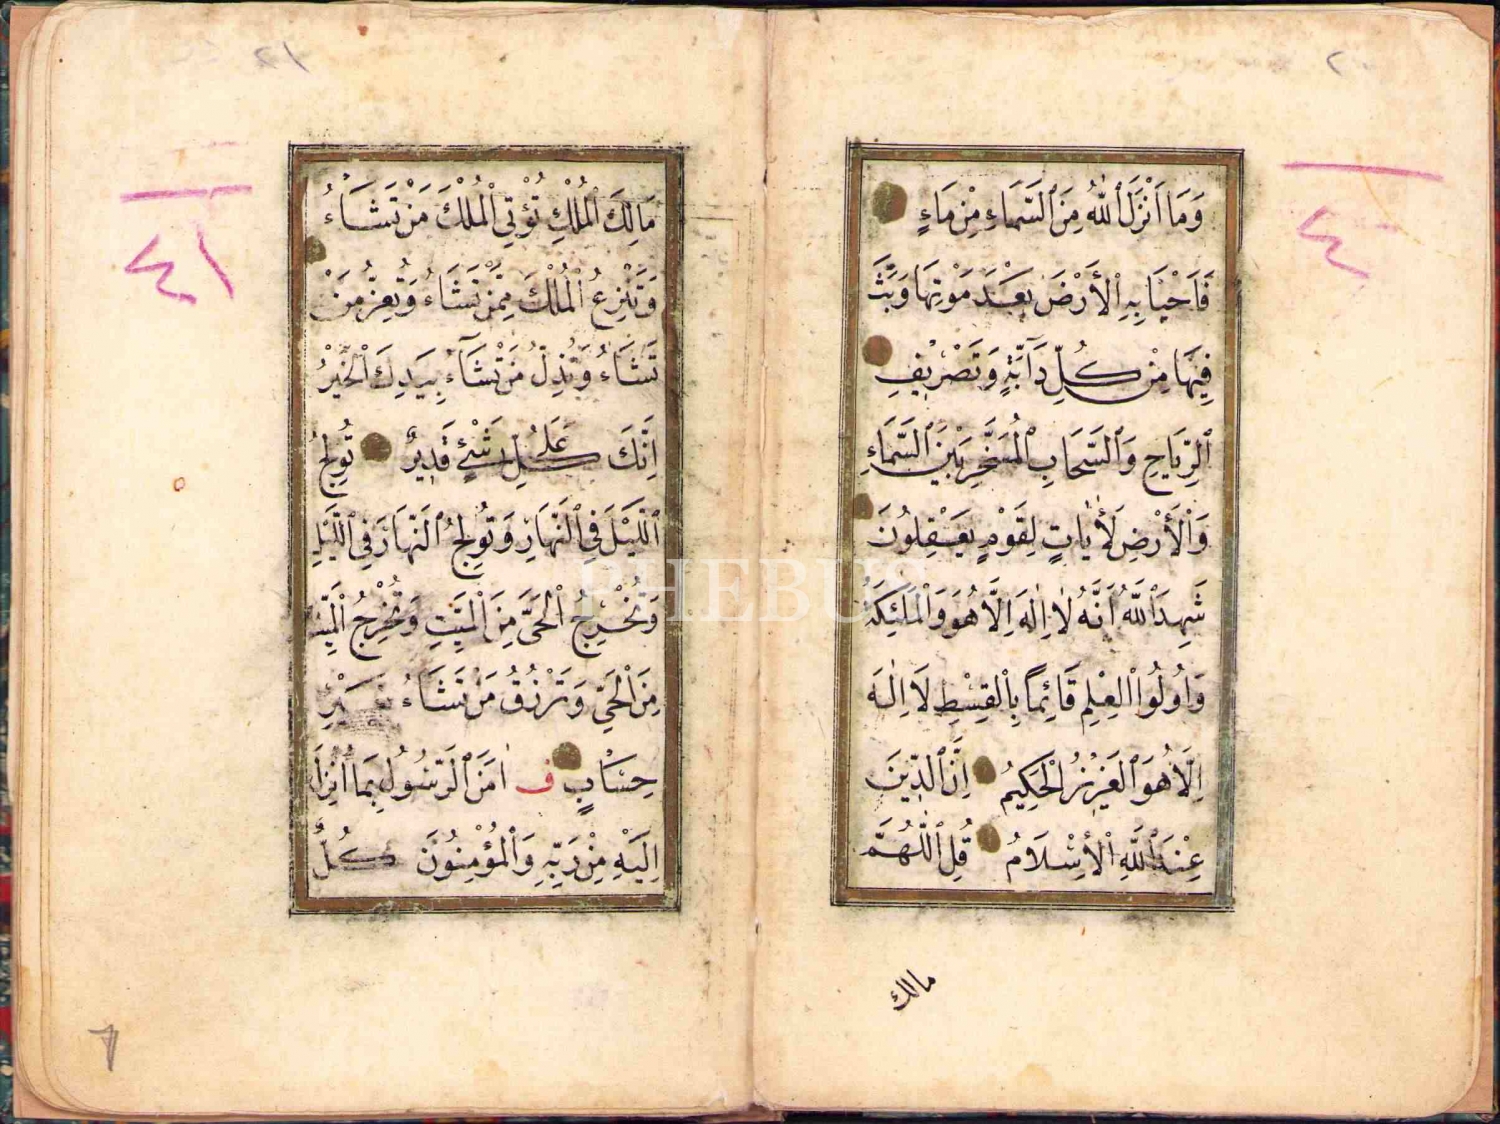 وَمَا اَنْزَلَ ٱللّٰهُ مِنَ ٱلسَّمَاءِ مِنْ مَاءٍ
فَاَحْيَا بِهِ ٱلْأَرْضَ بَعْدَ مَوْتِهَا وَبَثَّ
فِيهَا مِنْ كُلِّ دَآبَّةٍ وَتَصْرِيْفِ
ٱلرِّيَاحِ وَٱلسَّحَابِ ٱلْمُسَخَّرِ بَيْنَ ٱلسَّمَاءِ
وَٱلْأَرْضِ لَأٰيَاتٍ لِقَوْمٍ يَعْقِلُونَ
شَهِدَ ٱللّٰهُ اَنَّهُ لَا اِلٰهَ اِلَّا هُوَ وَٱلْمَلَئِكَةُ
وَاُولُوا ٱلْعِلْمِ قَائِمًا بِٱلْقِسْطِ لَا اِلٰهَ
اِلَّا هُوَ ٱلْعَزِيْزُ ٱلْحَكِيْمُ اِنَّ ٱلَّذِينَ
عِنْدَ ٱللّٰهِ ٱلْأِسْلَامُ قُلِ ٱللّٰهُمَّ
مالك
مَالِكَ ٱلْمُلْكِ تُؤْتِي ٱلْمُلْكَ مَنْ تَشَاءُ
وَتَنْزِعُ ٱلْمُلْكَ مِمَّنْ تَشَاءُ وَتُعِزُّ مَنْ
تَشَاءُ وَتُذِلُّ مَنْ تَشَآءُ بِيَدِكَ ٱلْخَيْرُ
اِنَّكَ عَلٰى كُلِّ شَيْءٍ قَدِيْرٌ تُولِجُ
ٱللَّيْلَ فِي ٱلنَّهَارِ وَتُولِجُ ٱلنَّهَارَ فِي ٱللَّيْلِ
وَتُخْرِجُ ٱلْحَيَّ مِنَ ٱلْمَيِّتِ وَتُخْرِجُ ٱلْمَيِّتَ
مِنَ ٱلْحَيِّ وَتَرْزُقُ مَنْ تَشَاءُ بِغَيْرِ
حِسَابٍ ف اٰمَنَ ٱلرَّسُولُ بِمَا اُنْزِلَ
اِلَيْهِ مِنْ رَبِّهِ وَٱلْمُؤْمِنُونَ كُلٌّ
١٤
٤
٢
١٢
PHEBUS